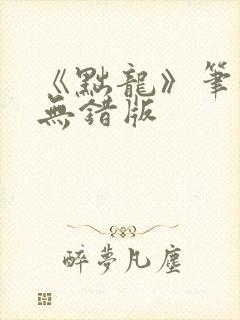 《點龍》筆
無錯版
醉夢凡塵